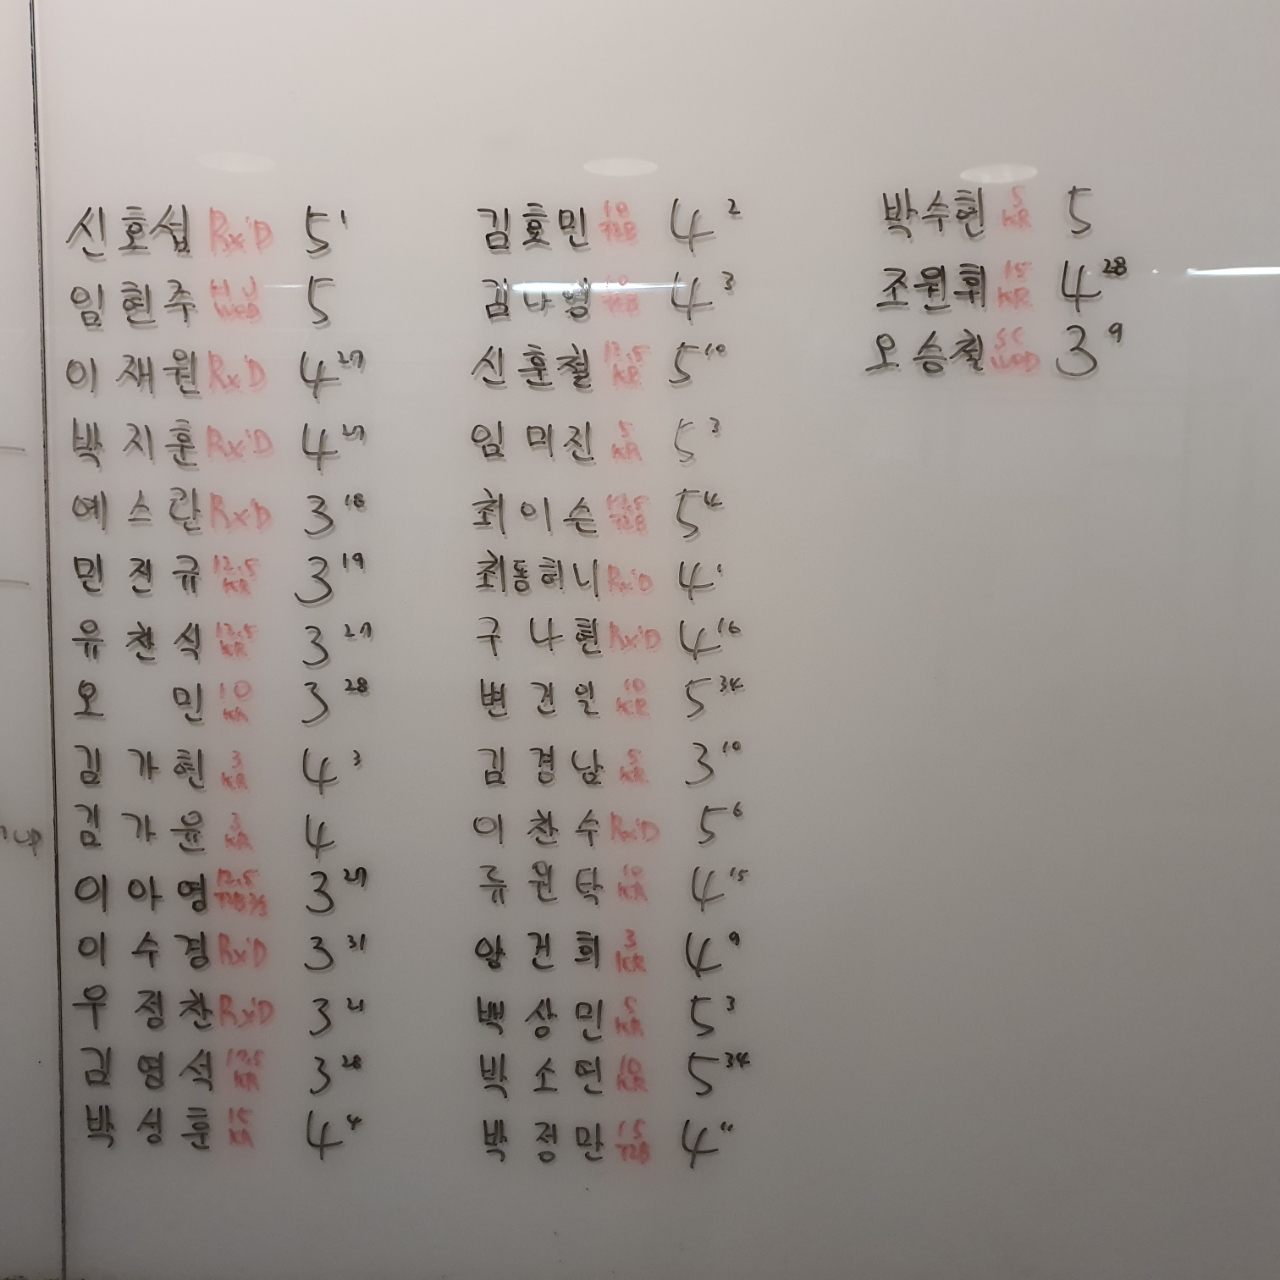 신호섭 Rx'D 5 1
임현주 HJ WOD 5
이재원 Rx'D 4 27
박지훈 Rx'D 4 27
예스란 Rx'D 3 18
민진규 12.5 KR 3 19
유찬식 12.5 KR 3 27
오 민 10 KR 3 28
김가현 3 KR 4 3
김가윤 3 KR 4
이아영 12.5 3 27
이수경 Rx'D 3 31
우정찬 Rx'D 3 21
김영석 12.5 KR 3 28
박성훈 15 KR 4 4
김효민 10 T2B 4 2
김나영 10 T2B 4 3
신훈철 12.5 KR 5 10
임미진 5 KR 5 3
최이슨 12.5 T2B 5 4
최동허니 Rx'D 4 1
구나현 Rx'D 4 16
변건일 10 KR 5 34
김경남 5 KR 3 10
이찬수 Rx'D 5 6
류원탁 10 KR 4 15
양건희 3 KR 4 9
백상민 5 KR 5 3
박소연 10 KR 5 34
박정만 15 T2B 4 11
박수현 5 KR 5
조원휘 15 KR 4 28
오승철 SC WOD 3 9